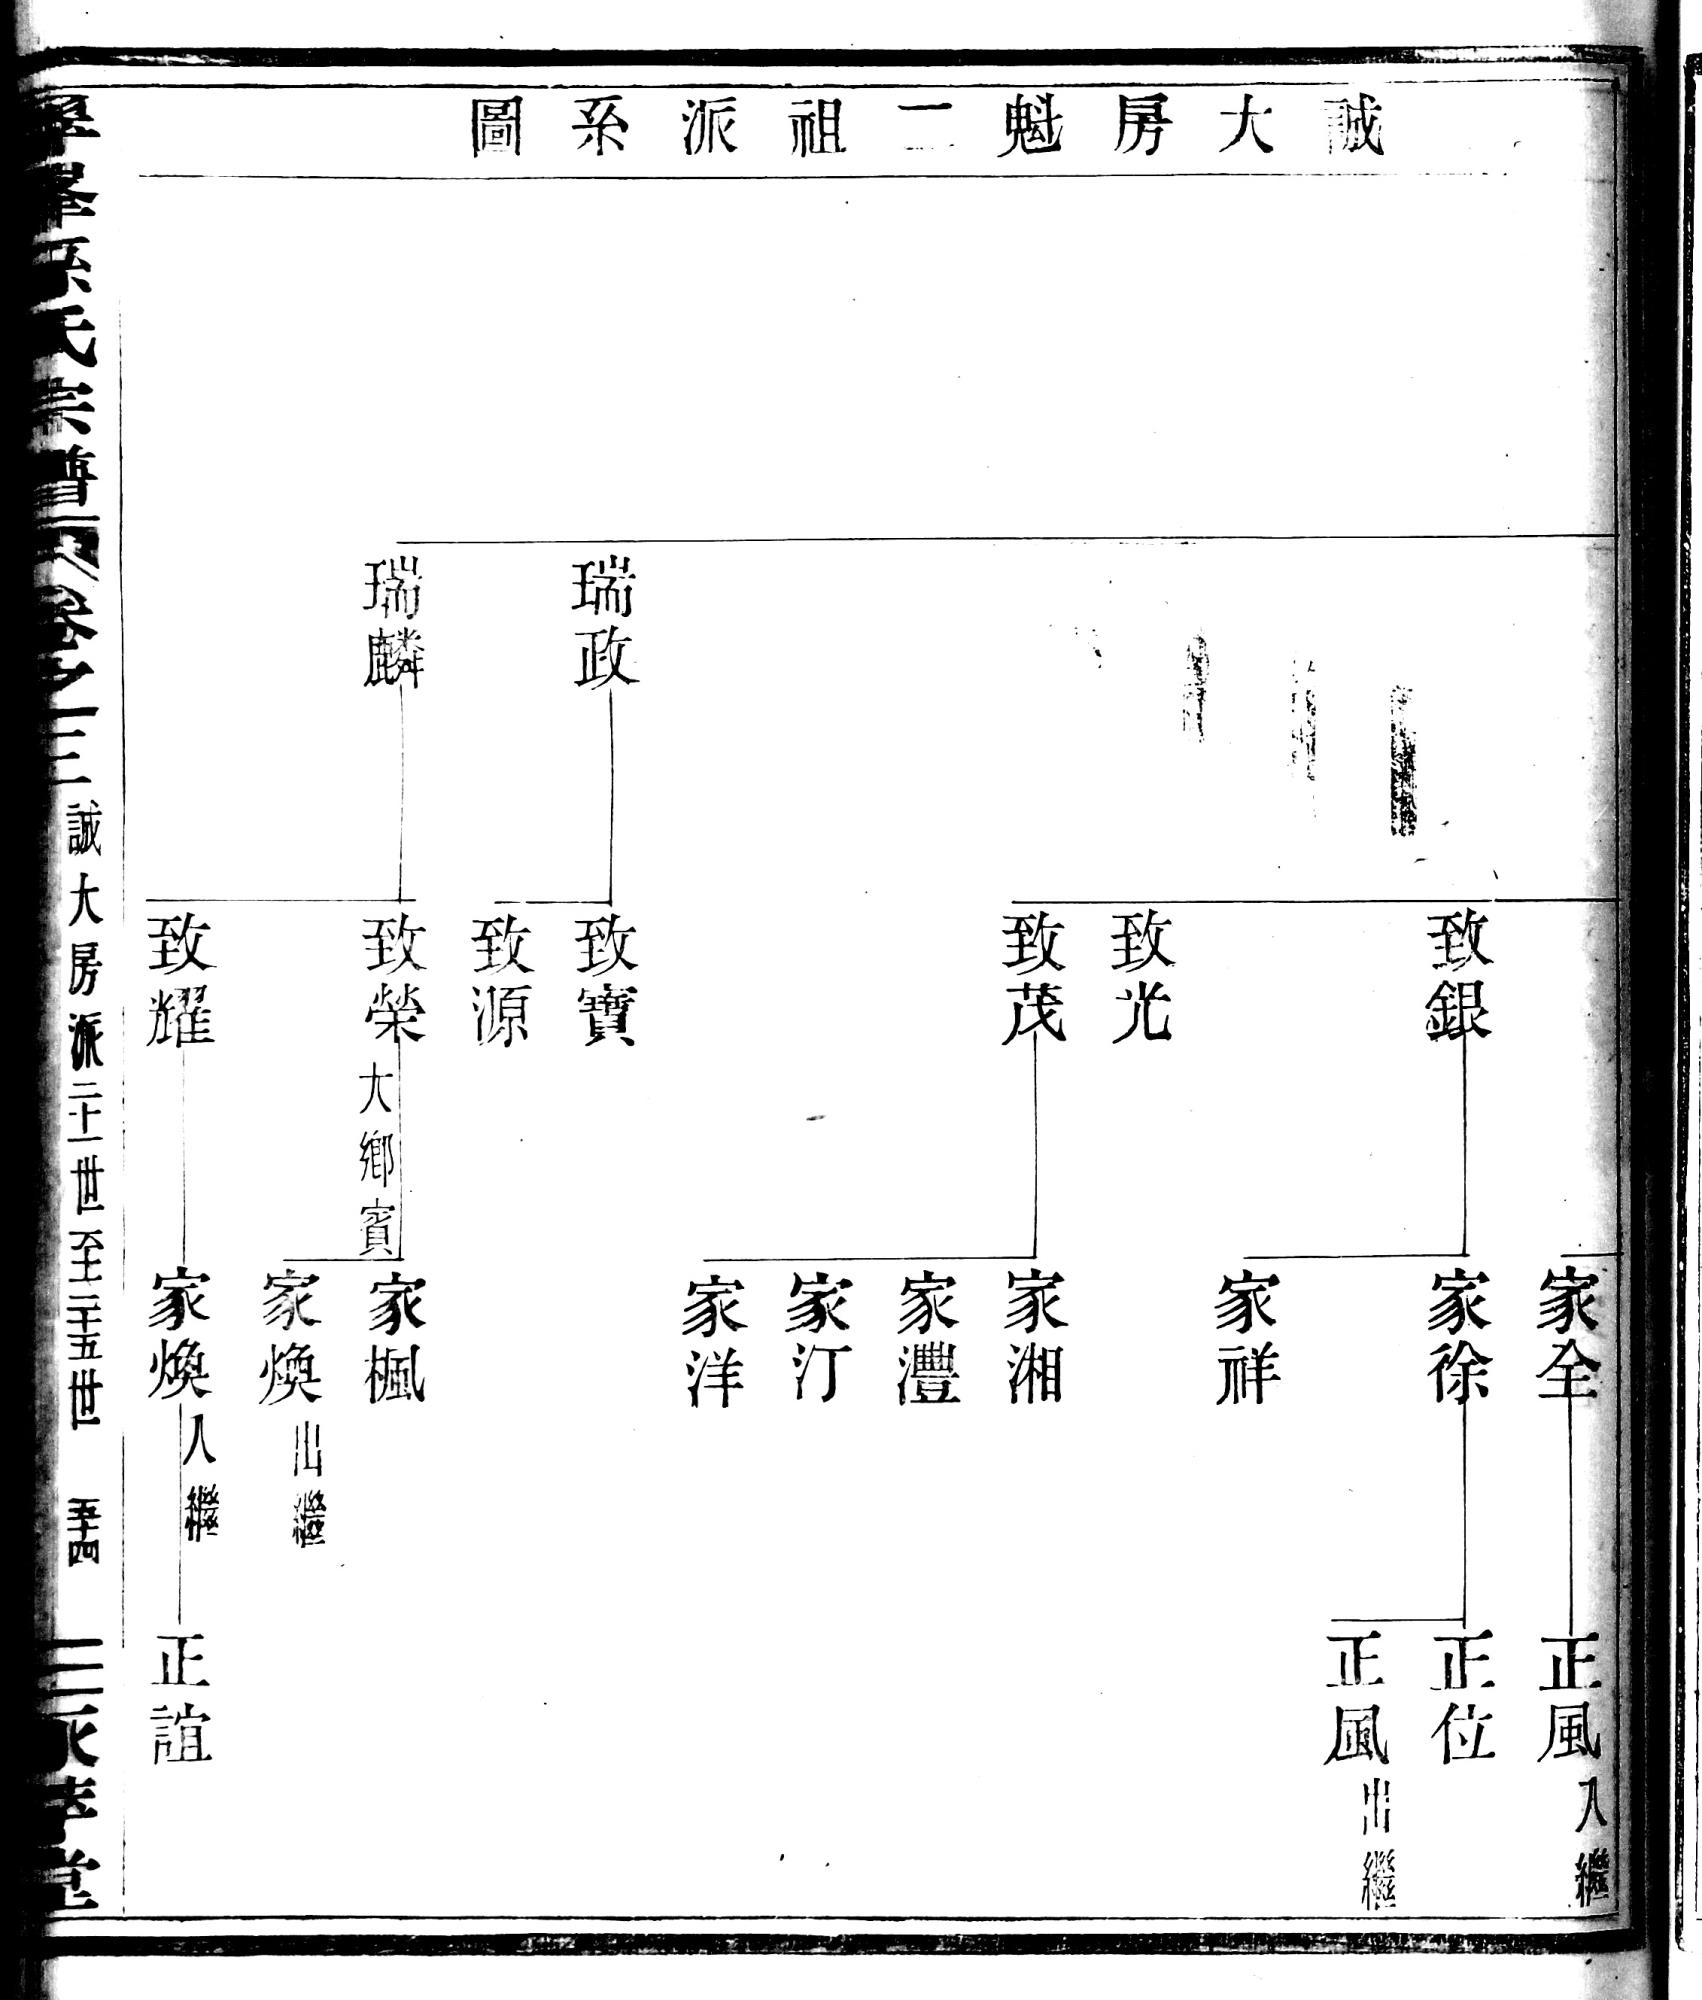 誠大房魁二祖派系圖
瑞政
瑞麟
致銀
致光
致茂
致寶
致源
致榮 大鄉賓
致耀
家全
家徐
家祥
家湘
家灃
家汀
家洋
家楓
家煥 出繼
家煥 入繼
正風 入繼
正位
正風 出繼
正誼
孫氏宗譜 卷之三 誠大房派二十一世至二十五世 五十四 孝堂